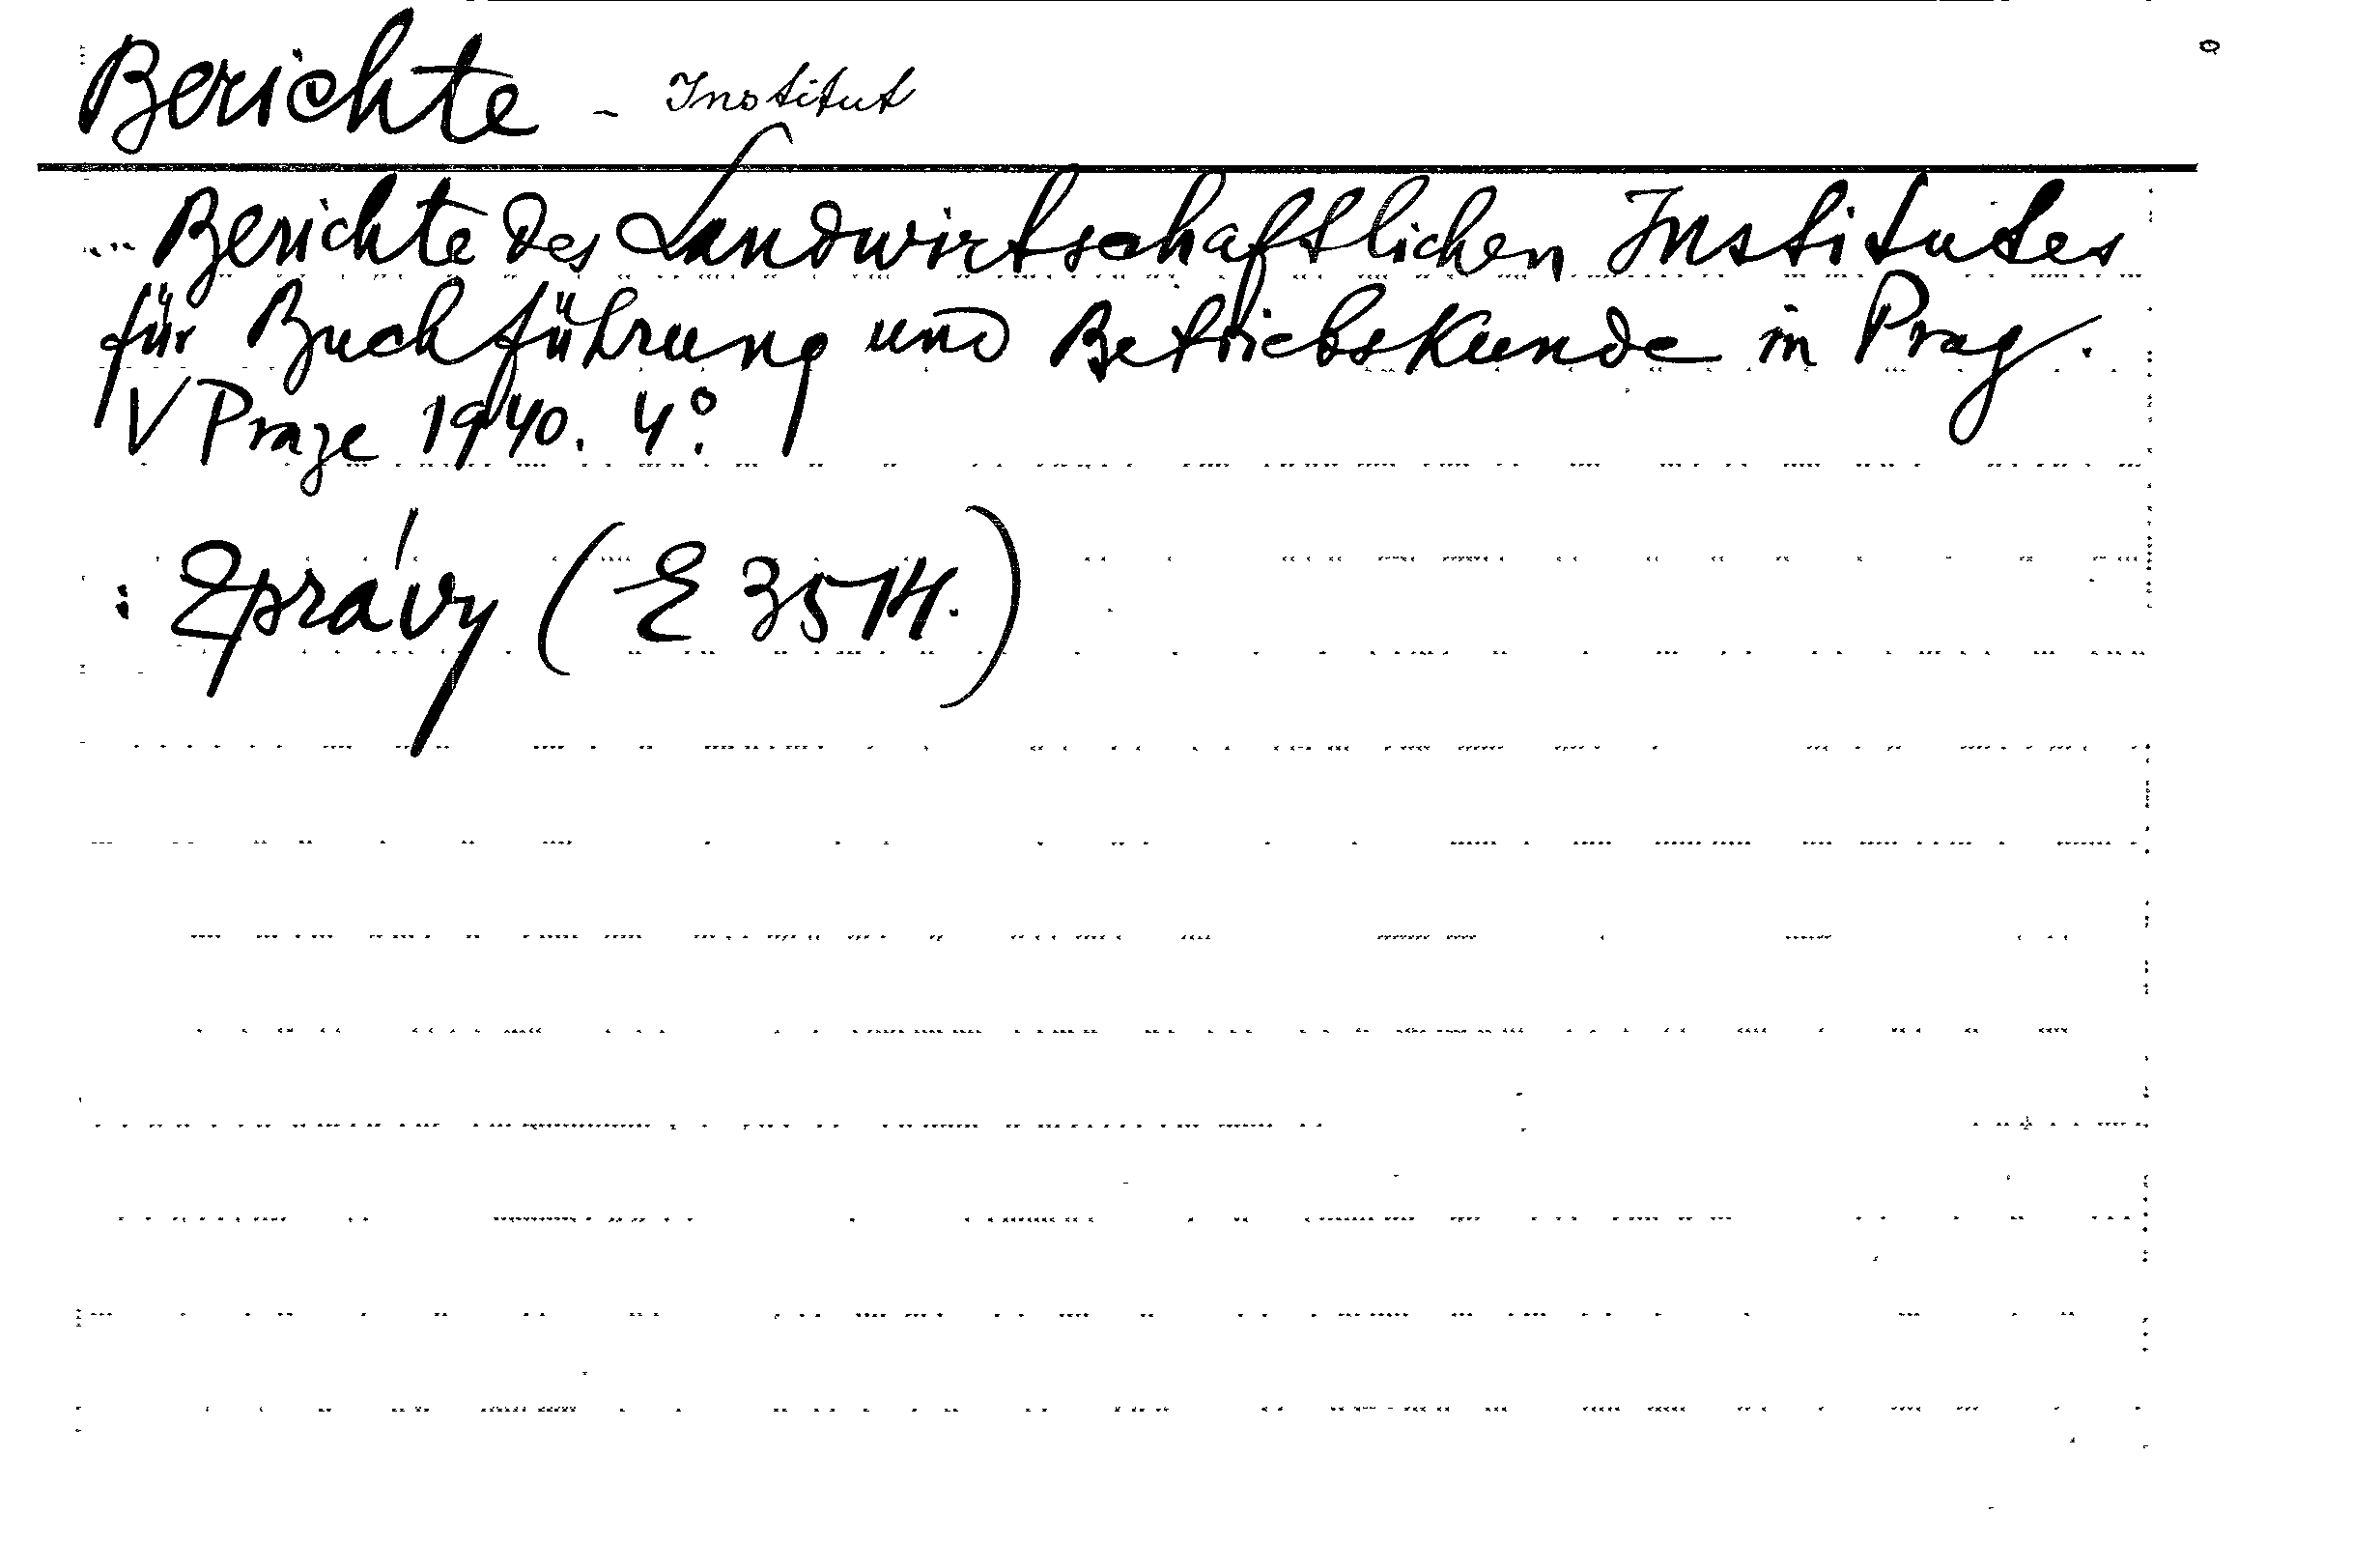 Berichte - Institut
Berichte des Landwirtschaftlichen Institutes
für Buchführung und Betriebskunde in Prag.
V Praze 1940. 4°.
: Zprávy (E 3514.)